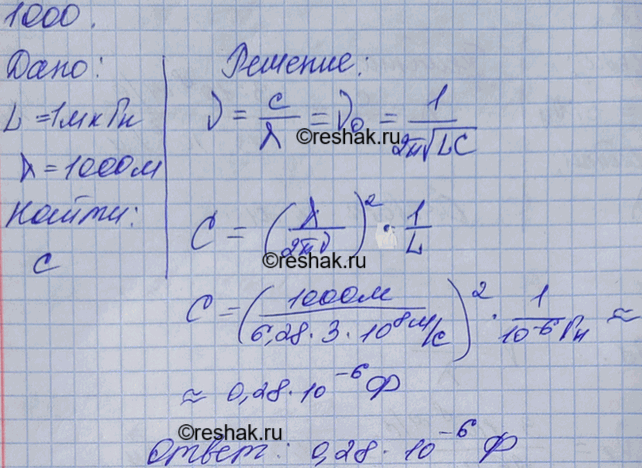 1000.
Дано:
L = 1мкГн
λ = 1000м
Найти:
C
Решение:
ν = c/λ = ν₀ = 1/(2π√LC)
©reshak.ru
C = (λ/2πν)² · 1/L
©reshak.ru
C = (1000м/(6,28 · 3 · 10⁸ м/с))² · 1/(10⁻⁶ Гн) ≈
≈ 0,28 · 10⁻⁶ Ф
©reshak.ru
Ответ: 0,28 · 10⁻⁶ Ф